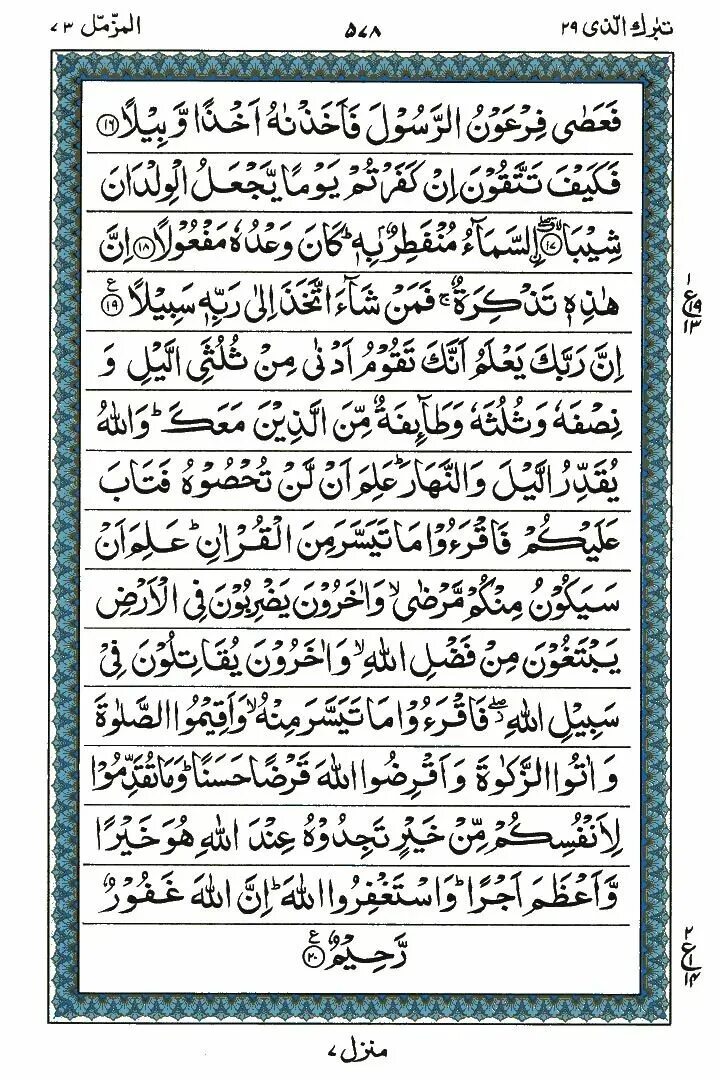 تبٰرك الّذی ٢٩ ۵٧٨ المزّمّل ٧٣
فَعَصٰى فِرْعَوْنُ الرَّسُوْلَ فَاَخَذْنٰهُ اَخْذًا وَّبِيْلًا ﴿١٦﴾
فَكَيْفَ تَتَّقُوْنَ اِنْ كَفَرْتُمْ يَوْمًا يَّجْعَلُ الْوِلْدَانَ
شِيْبَا ﴿١٧﴾ ۨالسَّمَآءُ مُنْفَطِرٌۢ بِهٖ ؕ كَانَ وَعْدُهٗ مَفْعُوْلًا ﴿١٨﴾ اِنَّ
هٰذِهٖ تَذْكِرَةٌ ۚ فَمَنْ شَآءَ اتَّخَذَ اِلٰى رَبِّهٖ سَبِيْلًا ﴿١٩﴾ ع
١ ع ١٩ ١٣
اِنَّ رَبَّكَ يَعْلَمُ اَنَّكَ تَقُوْمُ اَدْنٰى مِنْ ثُلُثَىِ الَّيْلِ وَ
نِصْفَهٗ وَثُلُثَهٗ وَطَآىِٕفَةٌ مِّنَ الَّذِيْنَ مَعَكَ ؕ وَاللّٰهُ
يُقَدِّرُ الَّيْلَ وَالنَّهَارَ ؕ عَلِمَ اَنْ لَّنْ تُحْصُوْهُ فَتَابَ
عَلَيْكُمْ فَاقْرَءُوْا مَا تَيَسَّرَ مِنَ الْقُرْاٰنِ ؕ عَلِمَ اَنْ
سَيَكُوْنُ مِنْكُمْ مَّرْضٰى ۙ وَاٰخَرُوْنَ يَضْرِبُوْنَ فِى الْاَرْضِ
يَبْتَغُوْنَ مِنْ فَضْلِ اللّٰهِ ۙ وَاٰخَرُوْنَ يُقَاتِلُوْنَ فِىْ
سَبِيْلِ اللّٰهِ ۖ فَاقْرَءُوْا مَا تَيَسَّرَ مِنْهُ ۙ وَاَقِيْمُوا الصَّلٰوةَ
وَاٰتُوا الزَّكٰوةَ وَاَقْرِضُوا اللّٰهَ قَرْضًا حَسَنًا ؕ وَمَا تُقَدِّمُوْا
لِاَنْفُسِكُمْ مِّنْ خَيْرٍ تَجِدُوْهُ عِنْدَ اللّٰهِ هُوَ خَيْرًا
وَّاَعْظَمَ اَجْرًا ؕ وَاسْتَغْفِرُوا اللّٰهَ ؕ اِنَّ اللّٰهَ غَفُوْرٌ
رَّحِيْمٌ ﴿٢٠﴾ ع
٢ ع ١ ١٤
منزل ٧